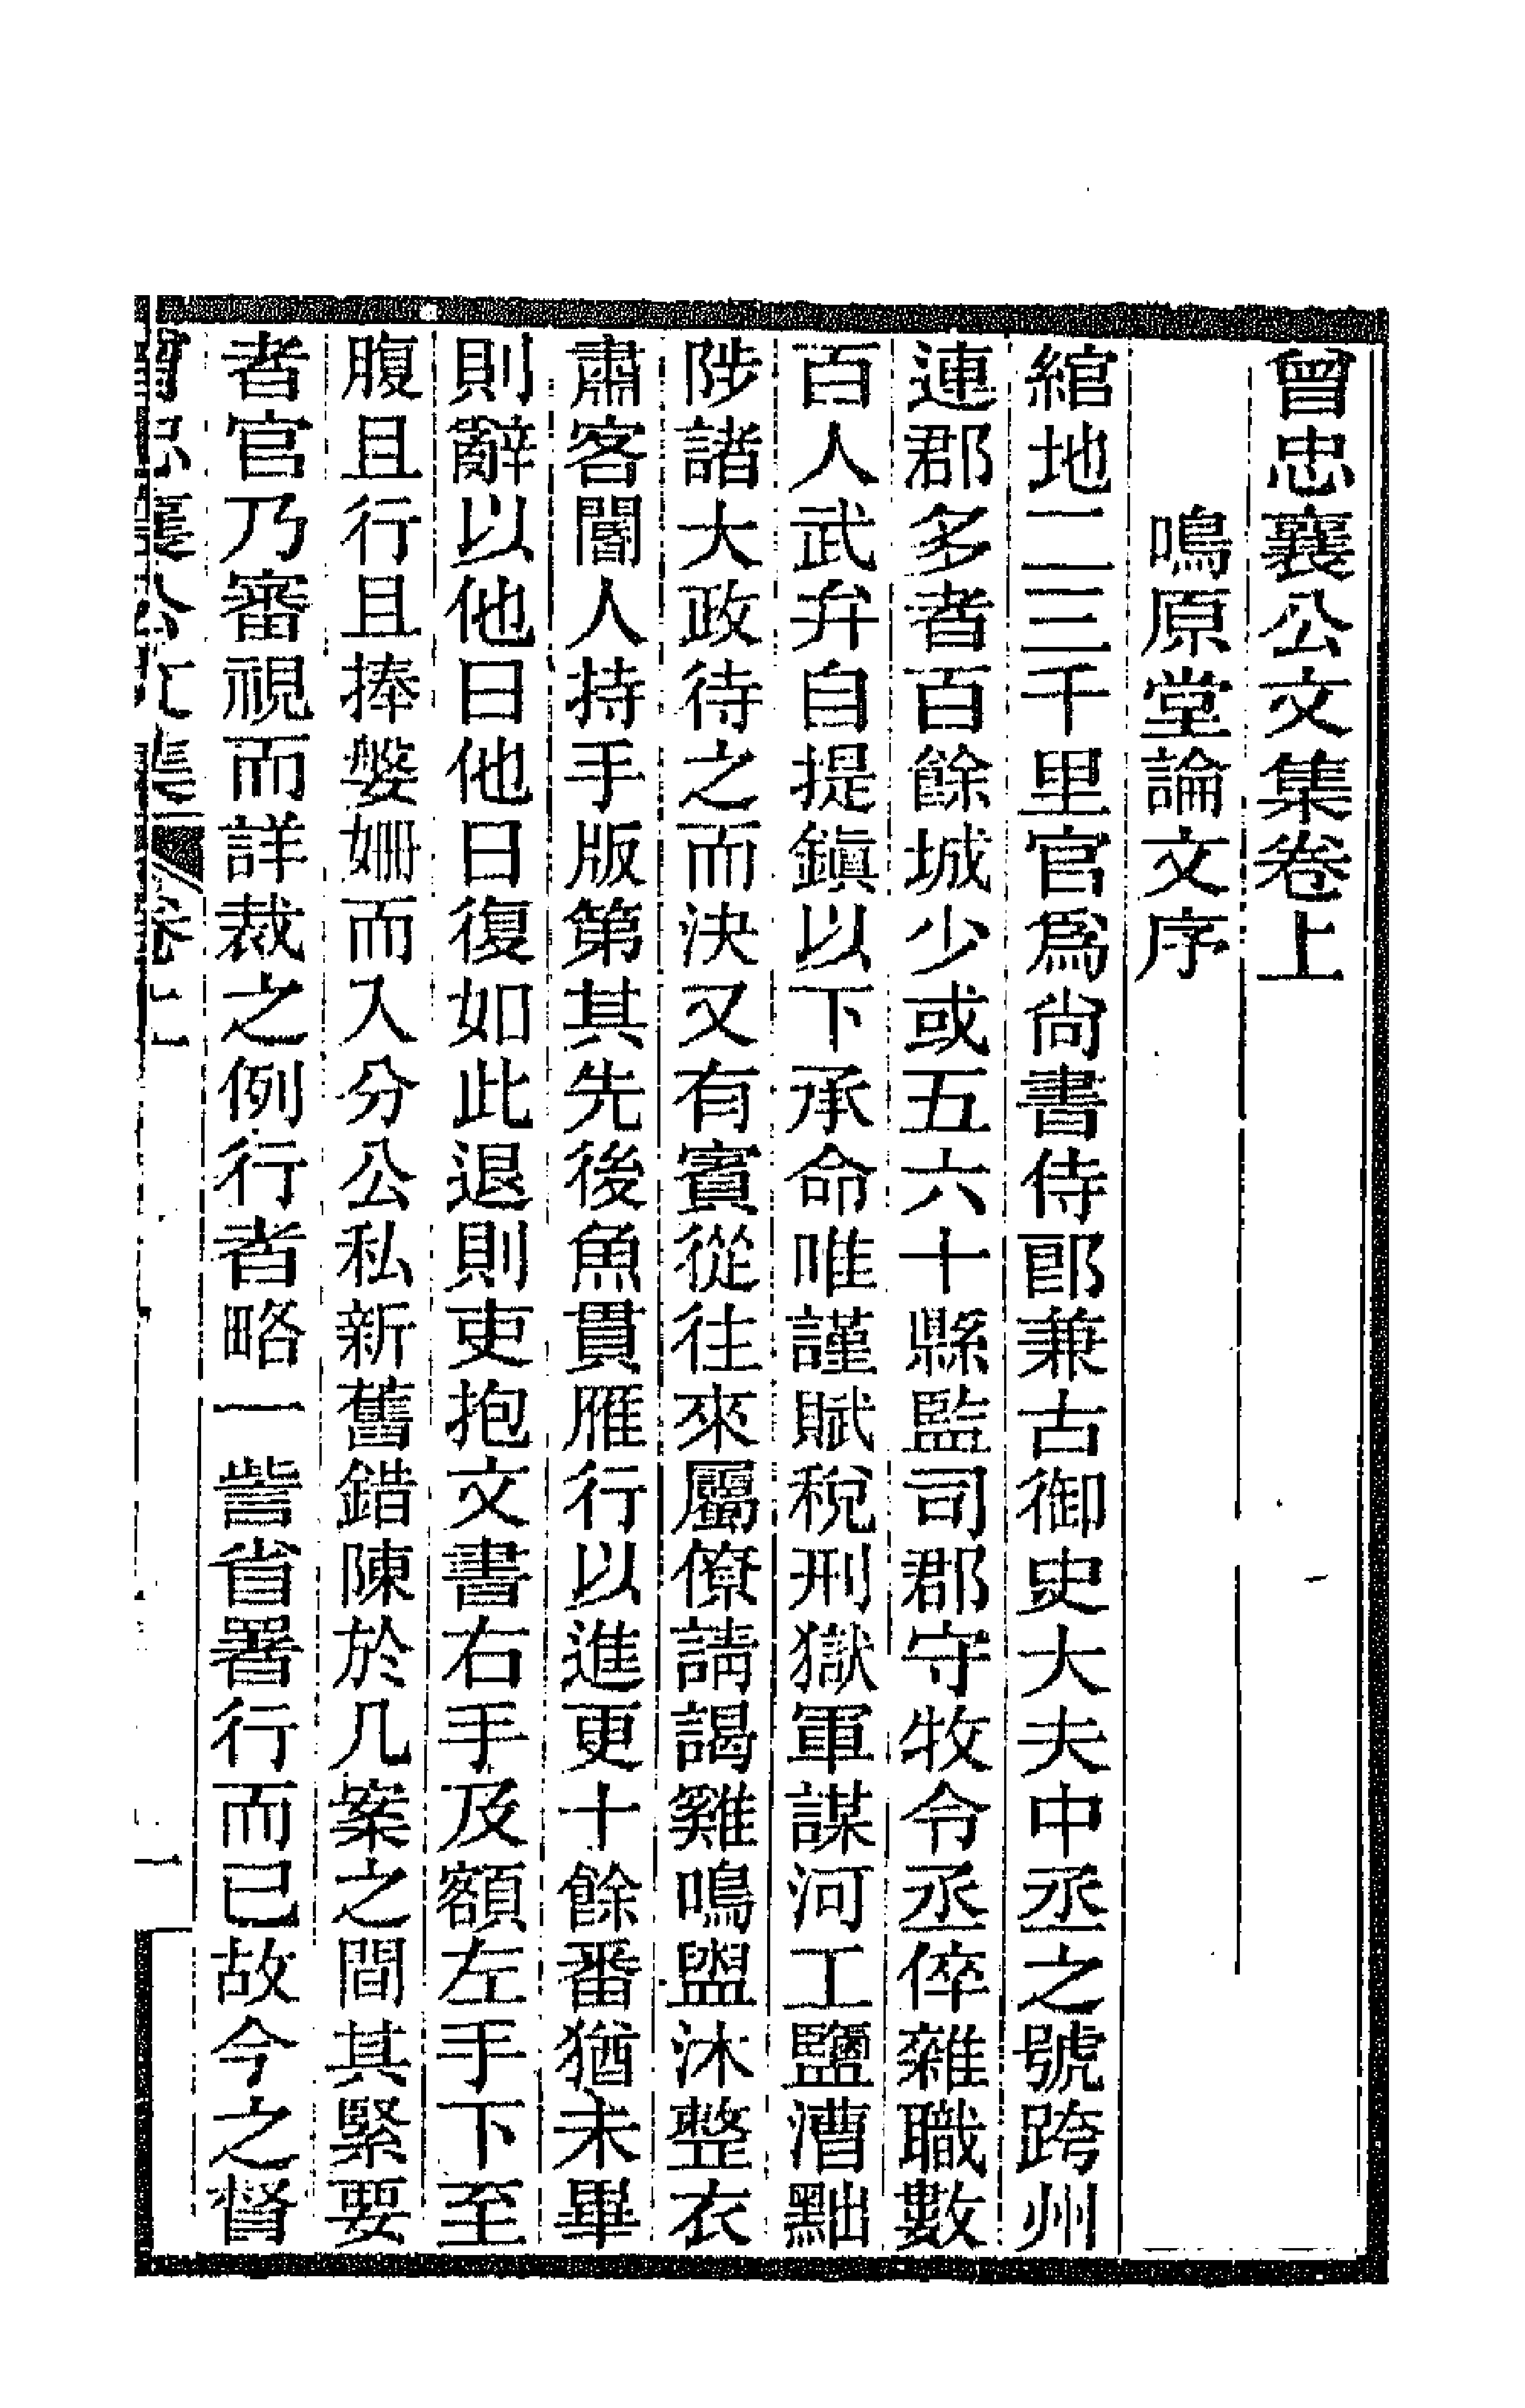 曾忠襄公文集卷上
鳴原堂論文序
綰地二三千里官爲尙書侍郎兼古御史大夫中丞之號跨州
連郡多者百餘城少或五六十縣監司郡守牧令丞倅雜職數
百人武弁自提鎭以下承命唯謹賦稅刑獄軍謀河工鹽漕黜
陟諸大政待之而決又有賓從往來屬僚請謁雞鳴盥沐整衣
肅客閽人持手版第其先後魚貫雁行以進更十餘番猶未畢
則辭以他曰他日復如此退則吏抱文書右手及額左手下至
腹且行且捧媻姍而入分公私新舊錯陳於几案之間其緊要
者官乃審視而詳裁之例行者略一訾省署行而已故今之督
曾忠襄公文集 卷上 一